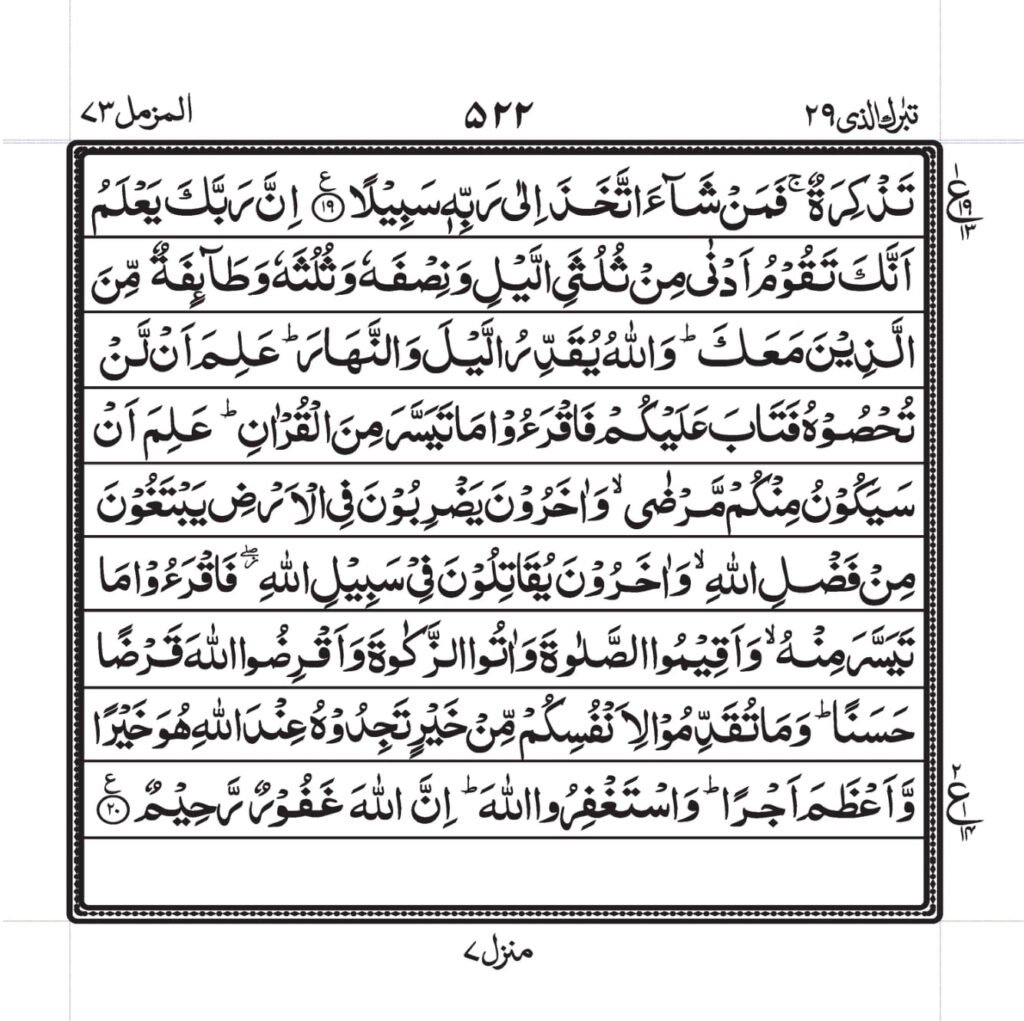 تبٰرك الذى ۲۹
۵۲۲
المزمل ۷۳
تَذْكِرَةٌ ۚ فَمَنْ شَآءَ اتَّخَذَ اِلٰى رَبِّهٖ سَبِيْلًا ۧ ۱۹ اِنَّ رَبَّكَ يَعْلَمُ
ع ۱ ۱۹ ۱۳
اَنَّكَ تَقُوْمُ اَدْنٰى مِنْ ثُلُثَيِ الَّيْلِ وَنِصْفَهٗ وَثُلُثَهٗ وَطَآئِفَةٌ مِّنَ
الَّذِيْنَ مَعَكَ ؕ وَاللّٰهُ يُقَدِّرُ الَّيْلَ وَالنَّهَارَ ؕ عَلِمَ اَنْ لَّنْ
تُحْصُوْهُ فَتَابَ عَلَيْكُمْ فَاقْرَءُوْا مَا تَيَسَّرَ مِنَ الْقُرْاٰنِ ؕ عَلِمَ اَنْ
سَيَكُوْنُ مِنْكُمْ مَّرْضٰى ۙ وَاٰخَرُوْنَ يَضْرِبُوْنَ فِى الْاَرْضِ يَبْتَغُوْنَ
مِنْ فَضْلِ اللّٰهِ ۙ وَاٰخَرُوْنَ يُقَاتِلُوْنَ فِىْ سَبِيْلِ اللّٰهِ ۖ فَاقْرَءُوْا مَا
تَيَسَّرَ مِنْهُ ۙ وَاَقِيْمُوا الصَّلٰوةَ وَاٰتُوا الزَّكٰوةَ وَاَقْرِضُوا اللّٰهَ قَرْضًا
حَسَنًا ؕ وَمَا تُقَدِّمُوْا لِاَنْفُسِكُمْ مِّنْ خَيْرٍ تَجِدُوْهُ عِنْدَ اللّٰهِ هُوَ خَيْرًا
وَّاَعْظَمَ اَجْرًا ؕ وَاسْتَغْفِرُوا اللّٰهَ ؕ اِنَّ اللّٰهَ غَفُوْرٌ رَّحِيْمٌ ۧ ۲۰
ع ۲ ۱ ۱۴
منزل ۷